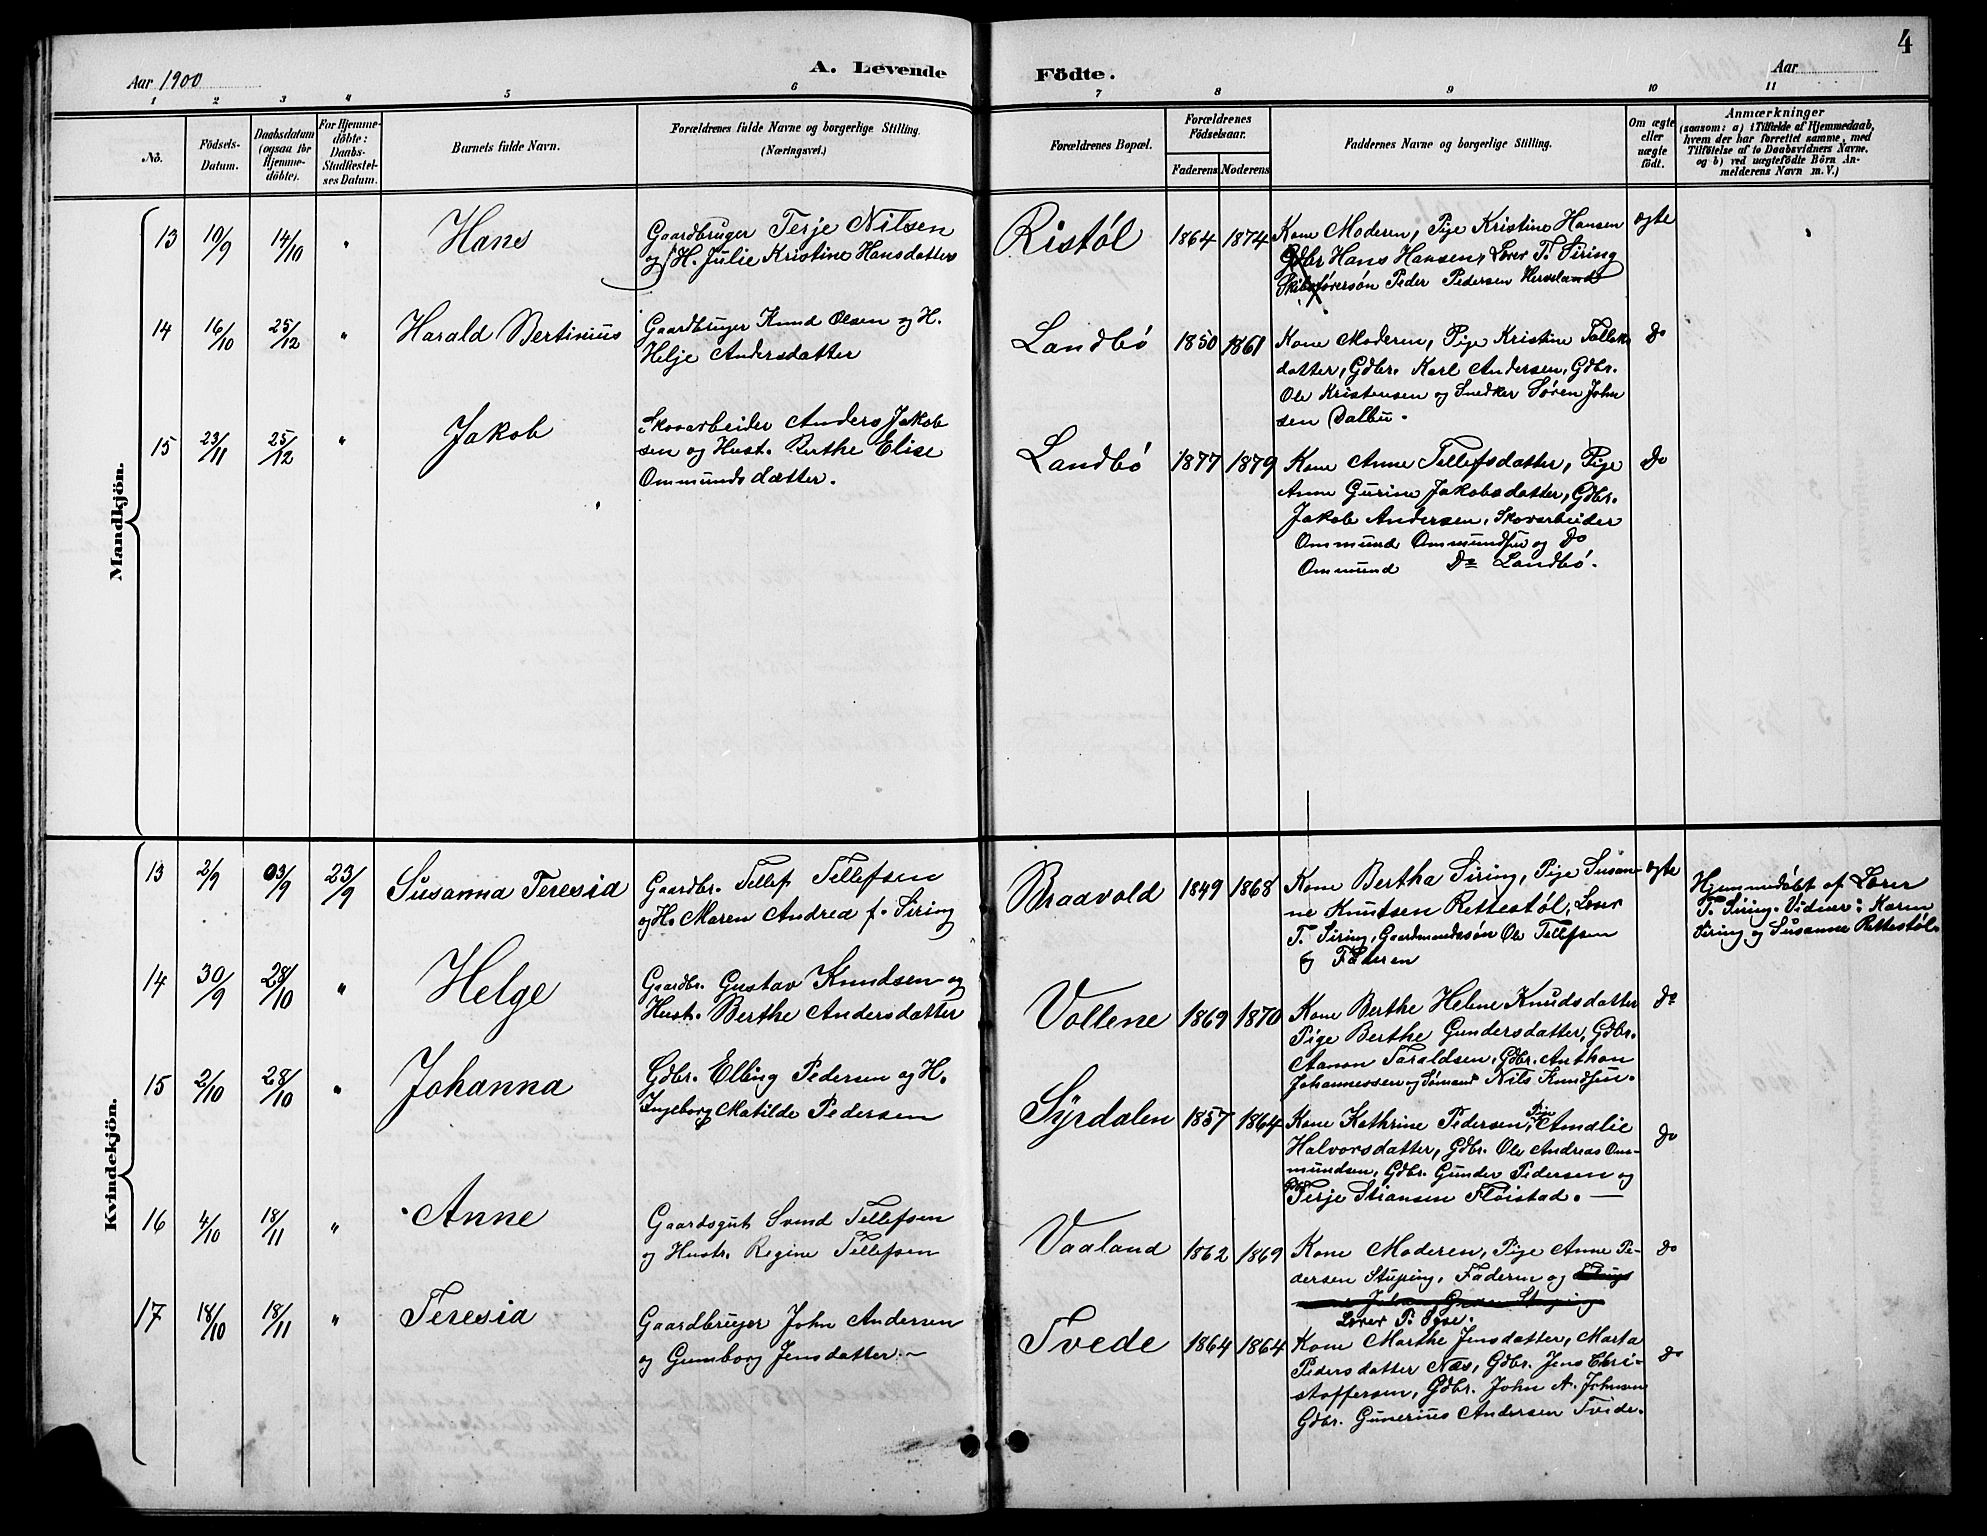 4
Aar 1900
A. Levende
Födte.
Aar
1 2 3 4 5 6 7 8 9 10 11
No.
Födsels-
Datum.
Daabsdatum
(ogsaa for
Hjemme-
döbte).
For Hjemme-
döbte:
Daabs-
Stadfæstel-
ses Datum.
Barnets fulde Navn.
Forældrenes fulde Navne og borgerlige Stilling.
(Næringsvei.)
Forældrenes Bopæl.
Forældrenes
Födselsaar.
Faderens
Moderens
Faddernes Navne og borgerlige Stilling.
Om ægte
eller
uægte
födt.
Anmærkninger
(saasom: a) i Tilfælde af Hjemmedaab,
hvem der har forrettet samme, med
Tilföielse af to Daabsvidners Navne,
og b) ved uægtefödte Börn An-
melderens Navn m. V.)
Mandkjön.
13 19/9 14/10 " Hans
Gaardbruger Terje Nilsen
og H. Julie Kristine Hansdatter
Ristøl 1864 1874
Kone Moderen, Pige Kristine Hansen
Gdbr Hans Hansen, Lærer T. Siring
Skibsførersøn Peder Pedersen Hersland
ægte
14 16/10 25/12 " Harald Bertinius
Gaardbruger Knud Olsen og H.
Helje Andersdatter
Landbø 1850 1861
Kone Moderen, Pige Kristine Tellefs
datter, Gdbr. Karl Andersen, Gdbr.
Ole Kristensen og Snedker Søren John
sen Dalbu.
Do
15 23/11 25/12 " Jakob
Skovarbeider Anders Jakob
sen og Hust. Berthe Elise
Ommundsdatter.
Landbø 1877 1879
Kone Anne Tellefsdatter, Pige
Anne Gurine Jakobsdatter, Gdbr.
Jakob Andersen, Skovarbeider
Ommund Ommundsen og Do
Ommund Do Landbø.
Do
Kvindekjön.
13 2/9 23/9 23/9 Susanna Teresia
Gaardbr. Tellef Tellefsen
og H. Maren Andrea f. Siring
Braavold 1849 1868
Kone Bertha Siring, Pige Susan-
ne Knutsen Rettestøl, Lærer
T. Siring, Gaardmandssøn Ole Tellefsen
og Faderen
ægte
Hjemmedøbt af Lærer
T. Siring. Vidner: Karen
Siring og Susanne Rettestøl.
14 30/9 28/10 " Helge
Gaardbr. Gustav Knudsen og
Hust. Berthe Andersdatter
Vollene 1869 1870
Kone Berthe Helene Knudsdatter
Pige Berthe Gundersdatter, Gdbr.
Aanon Taraldsen, Gdbr. Anthon
Johannessen og Sømand Nils Knudsen.
Do
15 2/10 28/10 " Johanna
Gdbr. Elling Pedersen og H.
Ingeborg Matilde Pedersen
Syrdalen 1857 1864
Kone Kathrine Pedersen, Pige Amalie
Halvorsdatter, Gdbr. Ole Andreas Om-
mundsen, Gdbr. Gunder Pedersen og
Gdbr. Terje Stiansen Fløistad.
Do
16 4/10 18/11 " Anne
Gaardsgut Svend Tellefsen
og Hustr. Regine Tellefsen
Vaaland 1862 1869
Kone Moderen, Pige Anne Pe-
dersen Stuping, Faderen og
Lærer P.
Do
17 18/10 18/11 " Teresia
Gaardbruger John Andersen
og Gunborg Jensdatter
Tvede 1864 1864
Kone Marthe Jensdatter, Marta
Pedersdatter Næs, Gdbr. Jens Chri-
stoffersen, Gdbr. John A. Johnsen
Gdbr. Gunerius Andersen Tvede.
Do